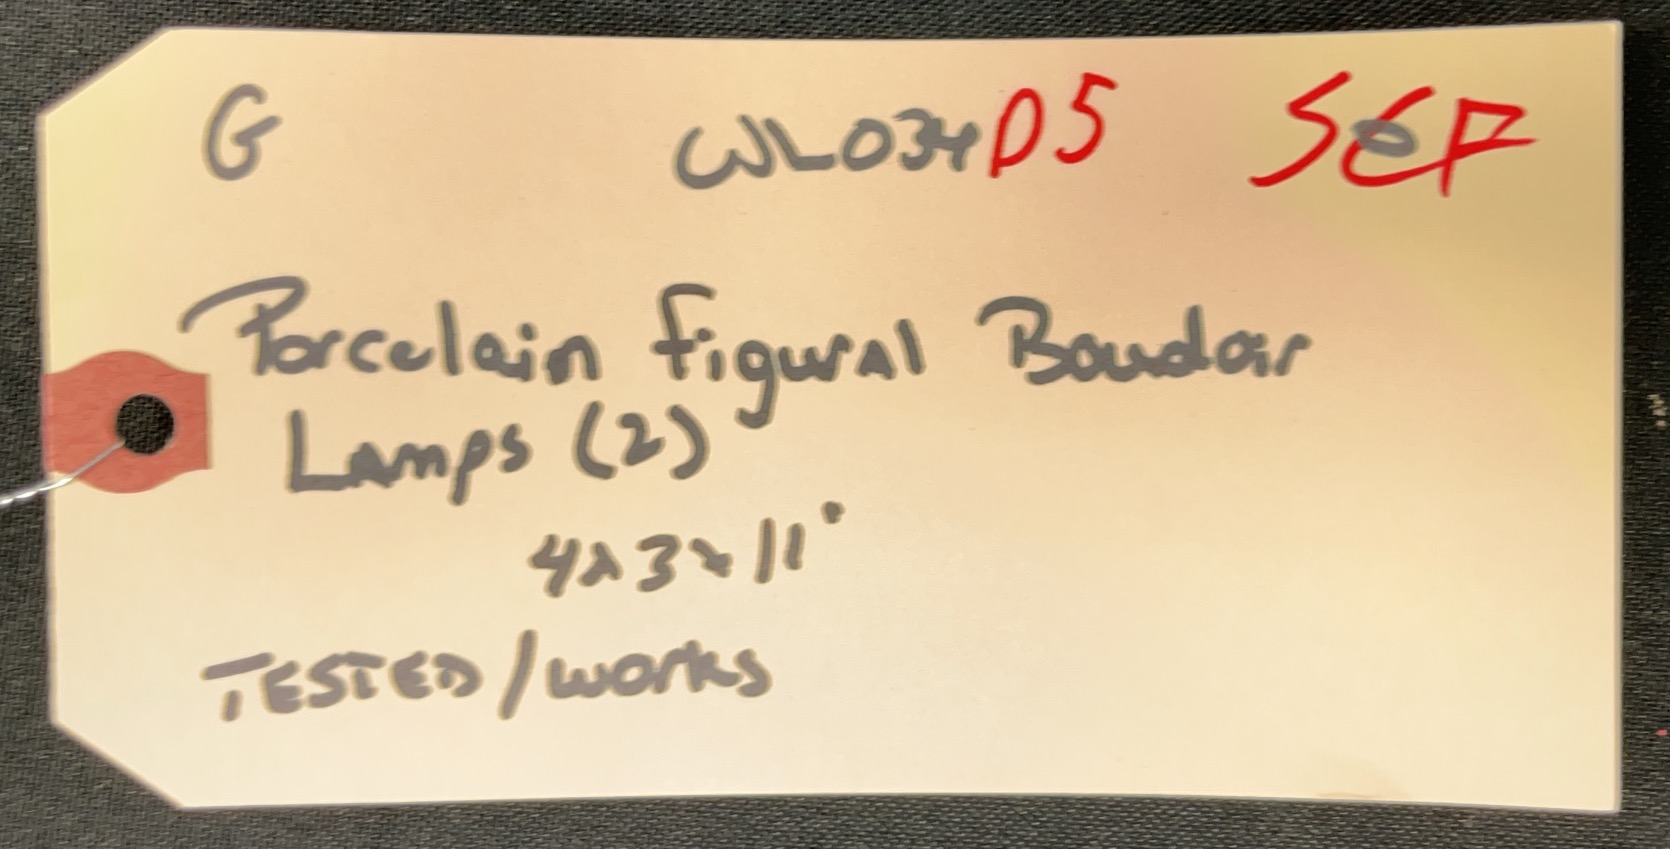 G WL034 D5 SEF
Porcelain figural Boudoir
Lamps (2)
4x3x11"
TESTED/works